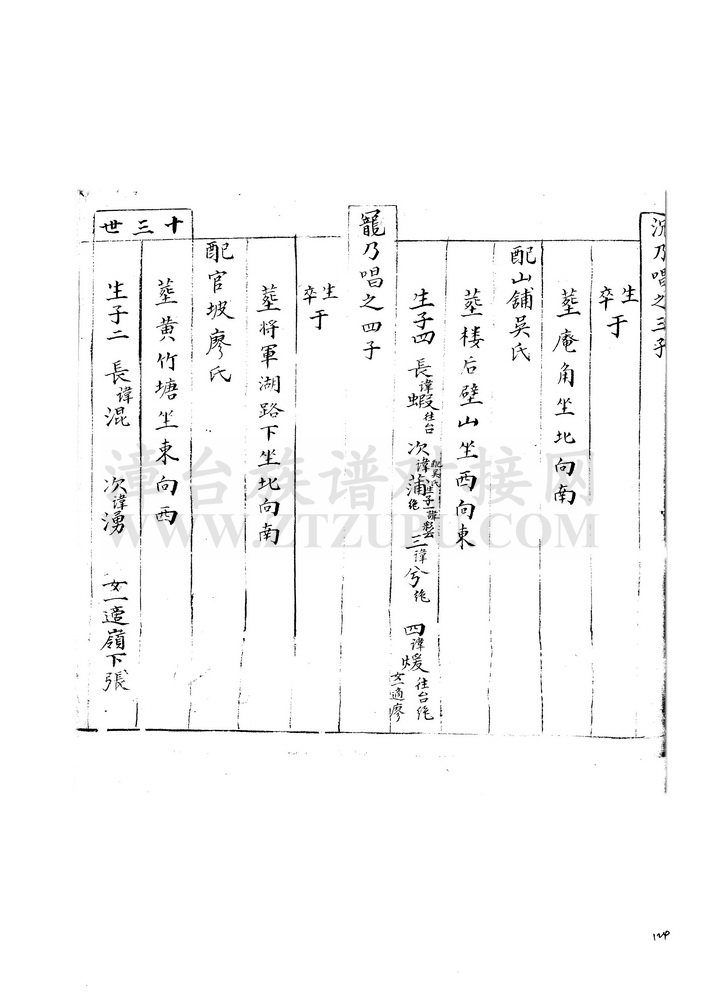 況乃唱之三子
生
卒于
塟庵角坐北向南
配山舖吳氏
塟楼后壁山坐西向東
生子四 長諱蝦往台 次諱蒲绝 配吳氏生子一諱 三諱兮绝 四諱煖往台绝 女一適廖
寵乃唱之四子
生
卒于
塟将軍湖路下坐北向南
配官坡廖氏
塟黄竹塘坐東向西
十三世
生子二 長諱混 次諱湧 女一適嶺下張
漳台族谱对接网
WWW.ZTZUPU.COM
124